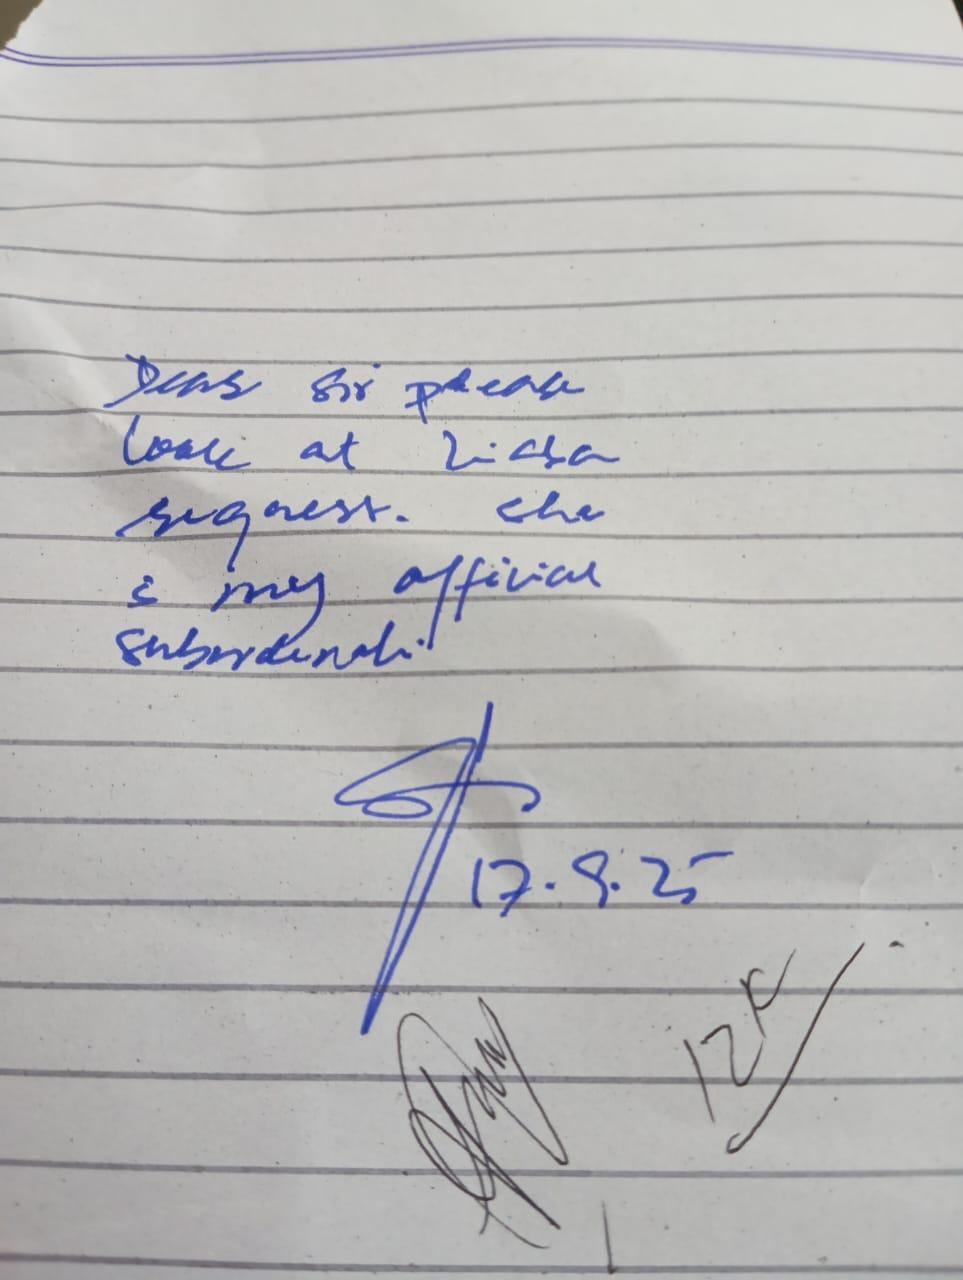 Dear Sir please
look at
request. She
is my official
subordinate.
17.9.25
12K